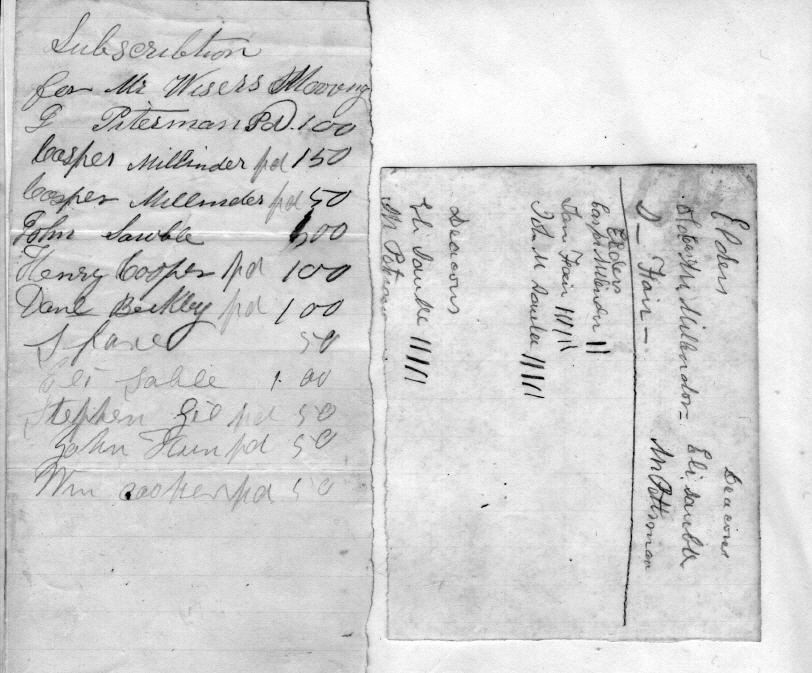 Subscribtion
for Mr Wisers Mooving
G Piterman Pd. 100
Casper Millinder pd 150
Casper Millinder pd 50
John Sawble 500
Henry Cooper pd 100
Dane Beckley pd 100
S Lane 50
Eli Sable 1.00
Stephen Gie pd 50
John Hun pd 50
Wm cooper pd 50
Elders
Millendor -
D - Hair -
Deacons
Eli Sauble
M Pettsman
Elders
Casp Millendor ||
Fair |||||
John M Sauble |||||
Deacons
Eli Sauble |||||
M Petman